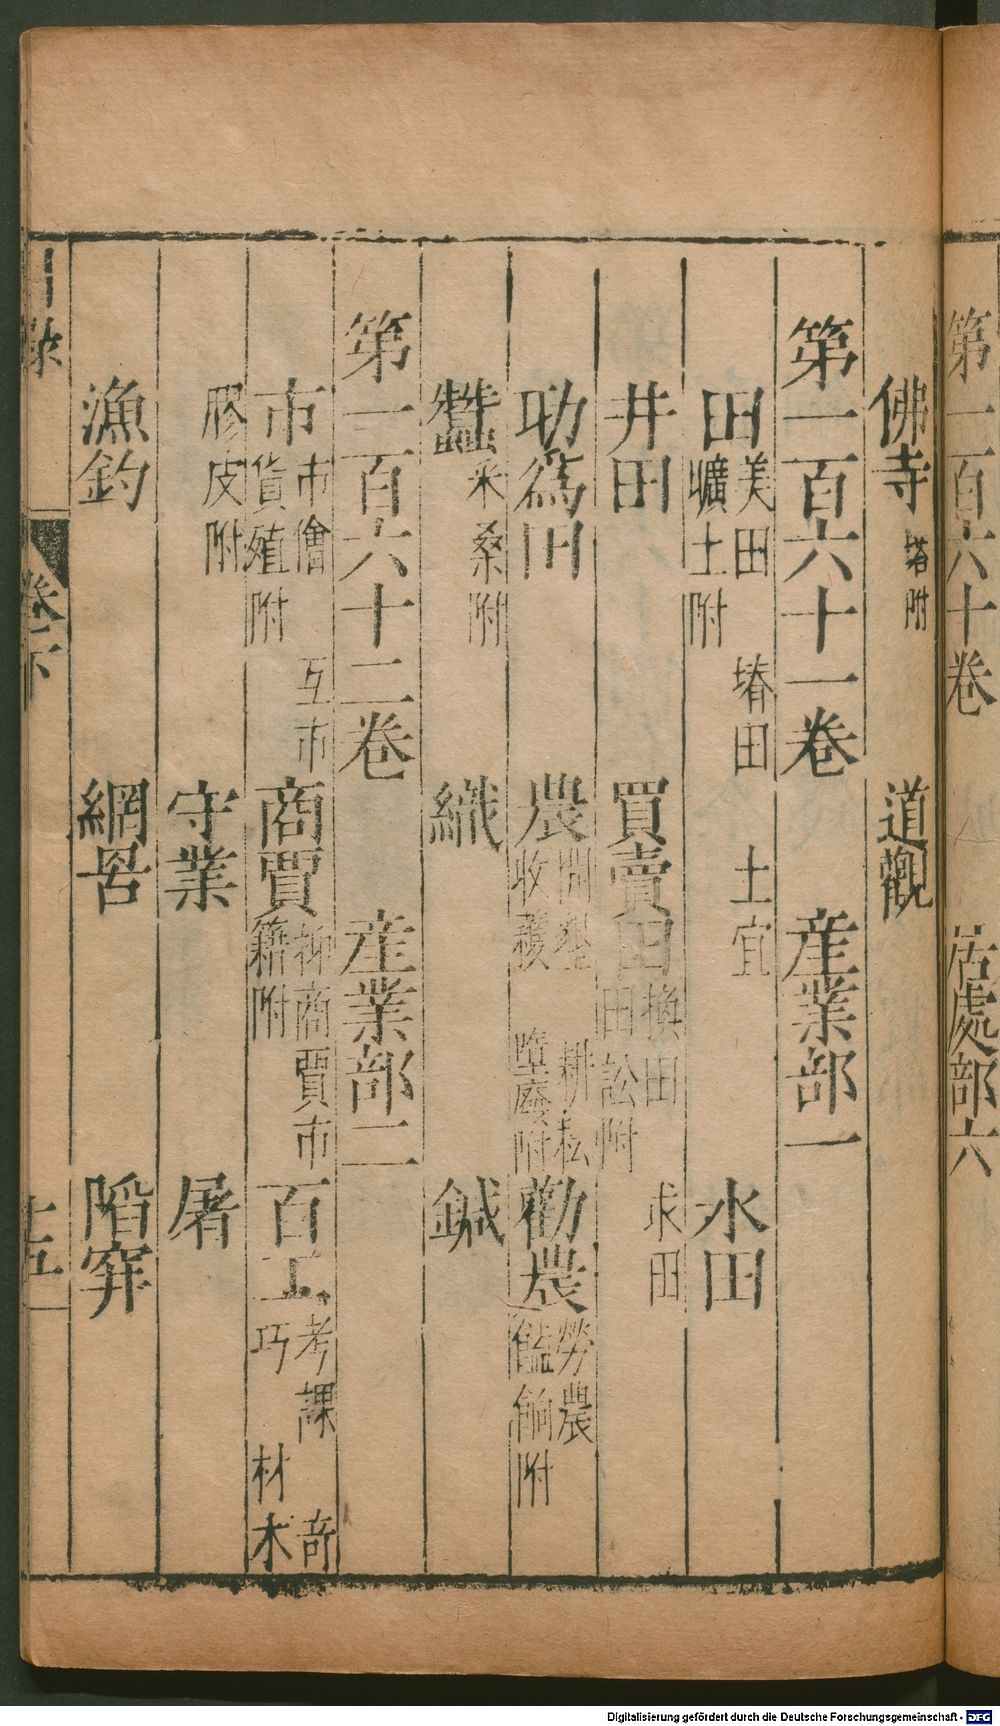 第一百六十卷 居處部六
佛寺 塔附 道觀
第一百六十一卷 産業部一
田 美田 塉田 土宜 曠土附 水田
井田 買賣田 換田 求田 田訟附
助爲田 農 開墾 耕耘 收穫 墮廢附 勸農 勞農 饁餉附
蠶 采桑附 織 鍼
第一百六十二卷 産業部二
市 市儈 互市 貨殖附 商賈 抑商賈市籍附 百工 考課 奇巧 材木
膠皮附 守業 屠
漁釣 網罟 陷穽
目錄 卷下 十五
Digitalisierung gefördert durch die Deutsche Forschungsgemeinschaft - DFG